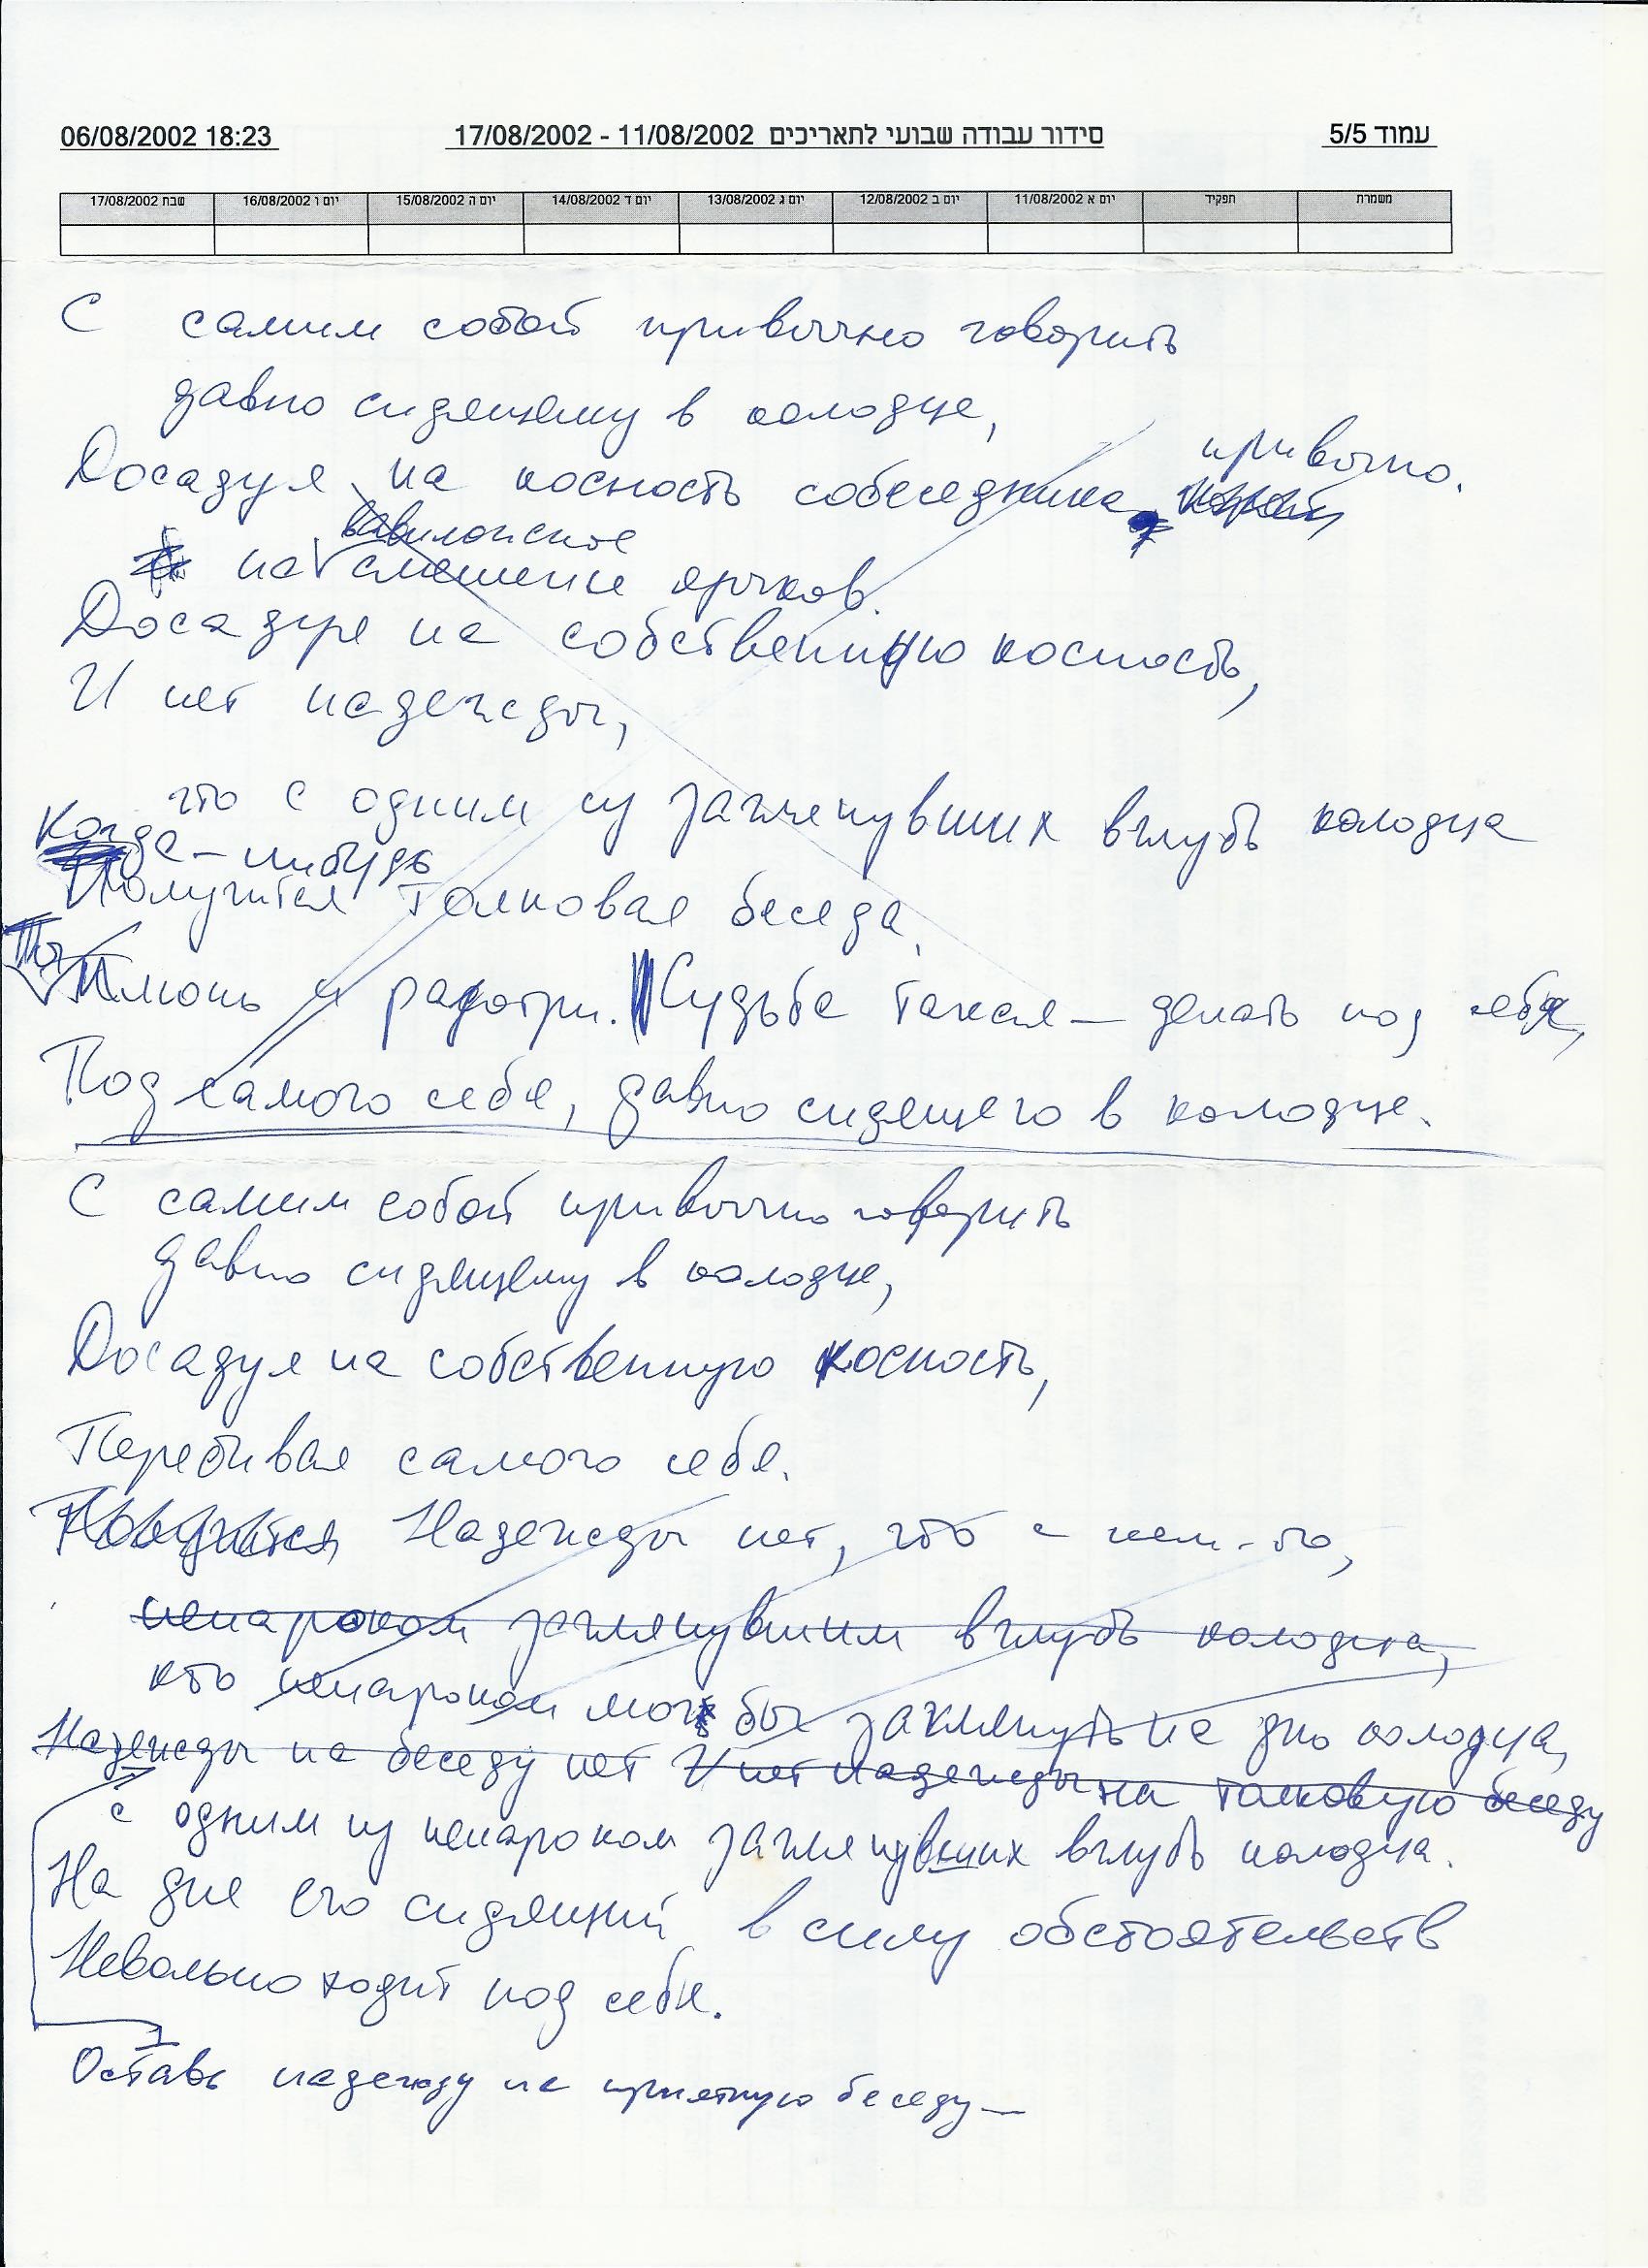 06/08/2002 18:23 סידור עבודה שבועי לתאריכים 11/08/2002 - 17/08/2002 עמוד 5/5
משמרת תפקיד יום א 11/08/2002 יום ב 12/08/2002 יום ג 13/08/2002 יום ד 14/08/2002 יום ה 15/08/2002 יום ו 16/08/2002 שבת 17/08/2002
С самим собой привычно говорить
давно сидящему в колодце,
привычно.
Досадуя на косность собеседника,
вавилонское
на смешение языков.
Досадуя на собственную косность,
И нет надежды,
что с одним из заглянувших вглубь колодца
Когда-нибудь
Получится толковая беседа.
Ты
Плюнь и разотри. Судьба такая – делать под себя,
Под самого себя, давно сидящего в колодце.
С самим собой привычно говорить
давно сидящему в колодце,
Досадуя на собственную косность,
Перебивая самого себя.
Надежды нет, что с кем-то,
ненароком заглянувшим вглубь колодца,
кто ненароком мог бы заглянуть на дно колодца,
Надежды на беседу нет И нет надежды на толковую беседу
с одним из ненароком заглянувших вглубь колодца.
На дне его сидящий в силу обстоятельств
Невольно ходит под себя.
Оставь надежду на приятную беседу –